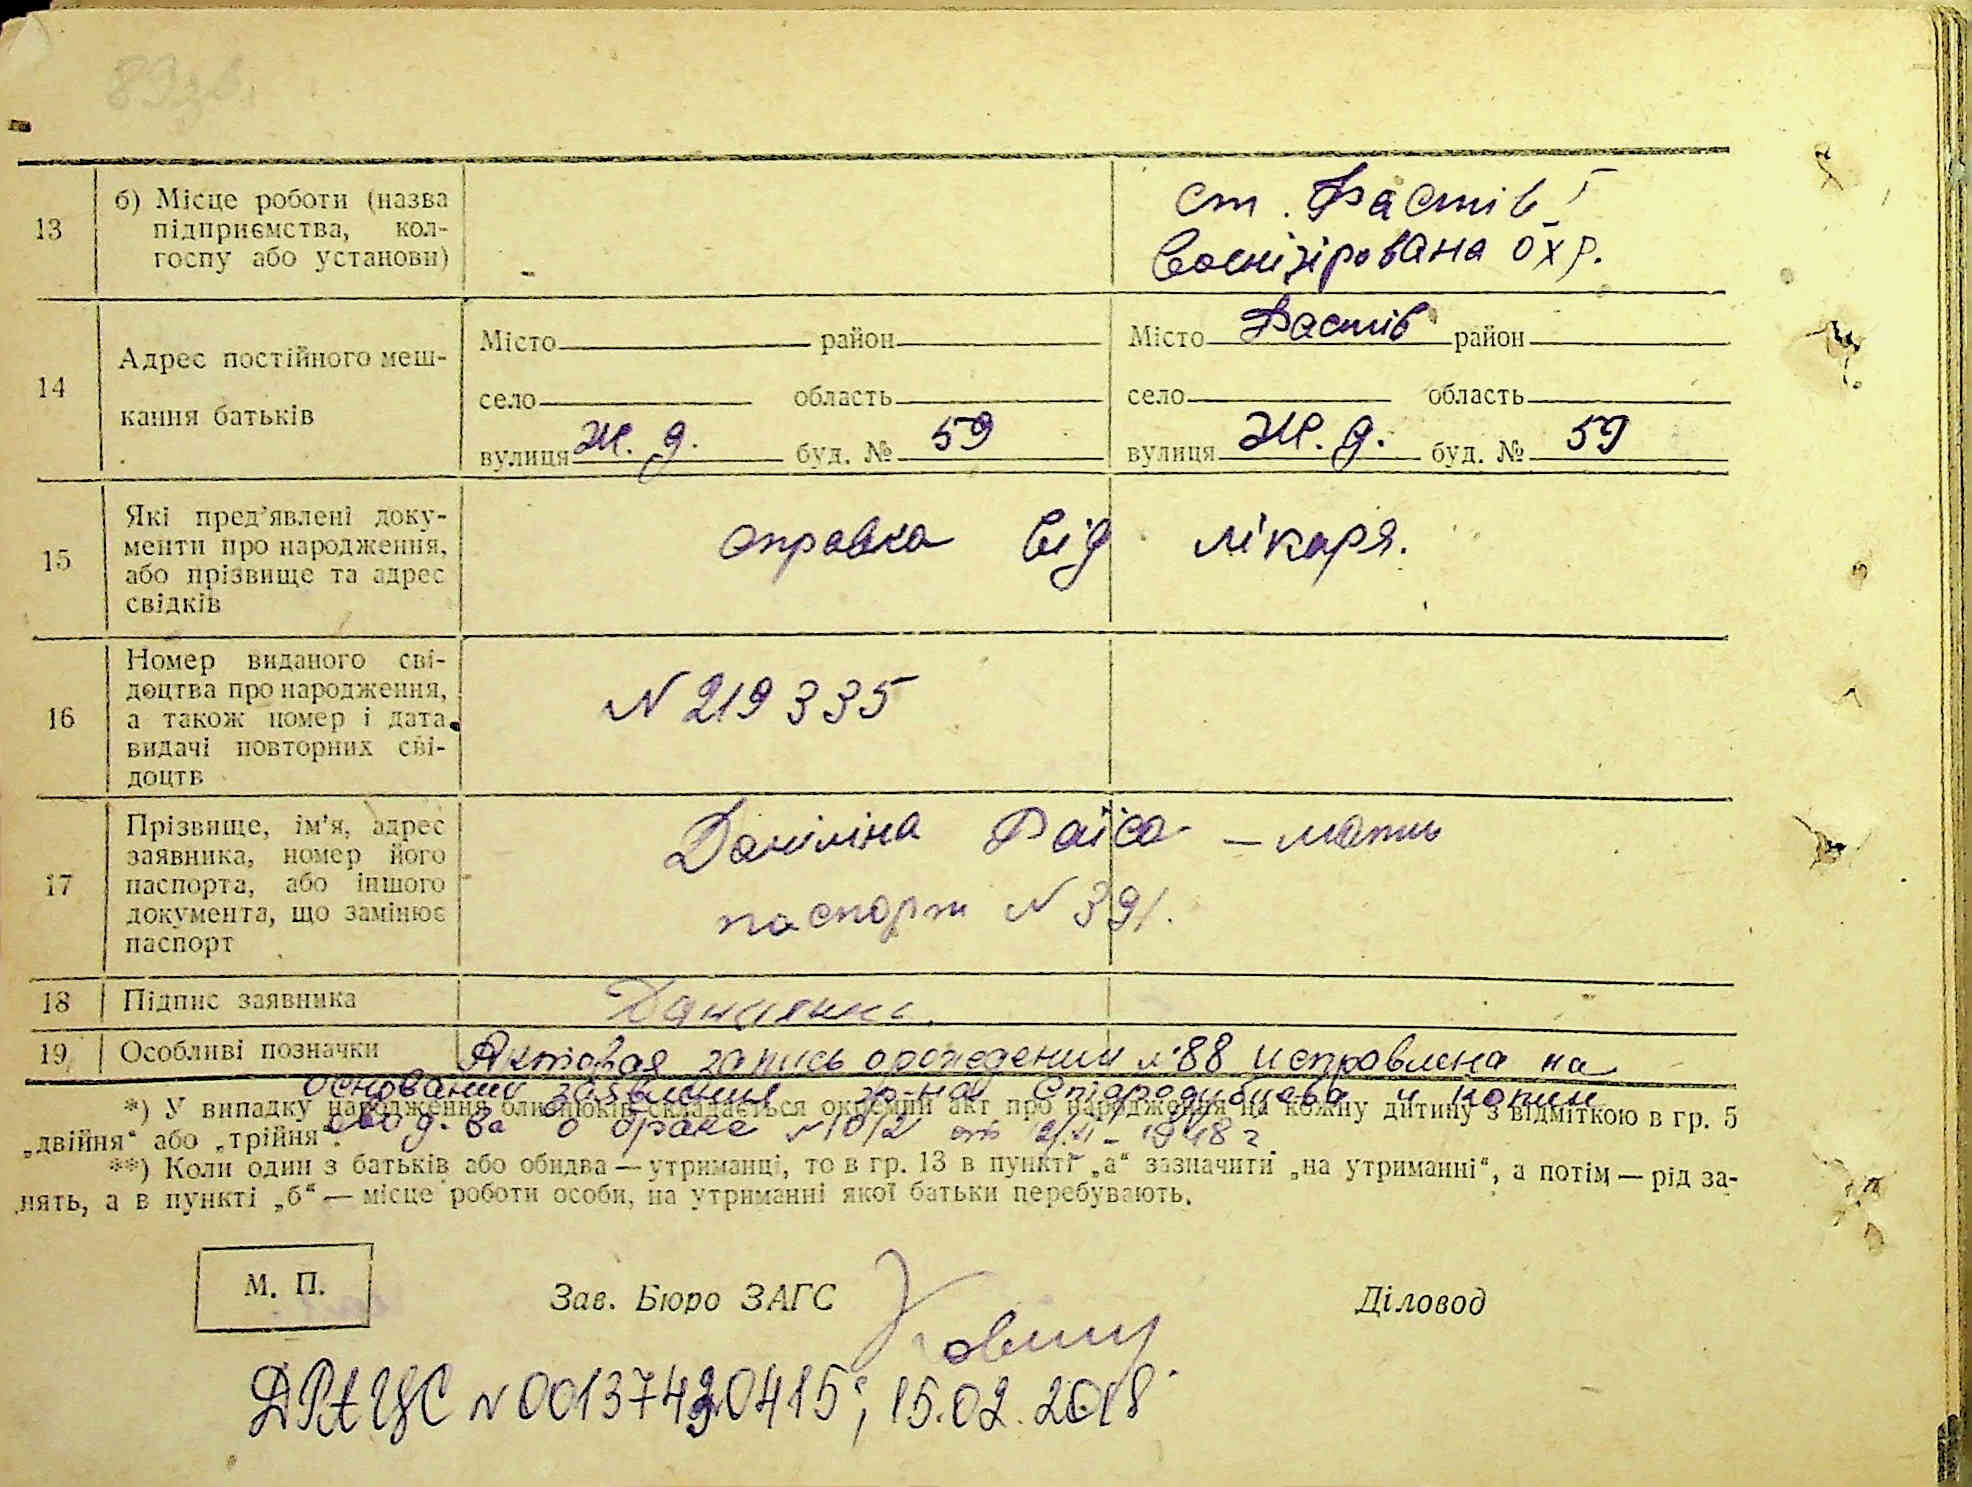 89зв.
13 б) Місце роботи (назва підприємства, кол-госпу або установи) - ст. Фастів I
воєнізірована охр.
14 Адрес постійного меш-
кання батьків
Місто район Місто Фастів район
село область село область
вулиця Ж. д. буд. № 59 вулиця Ж. д. буд. № 59
15 Які пред’явлені доку-
менти про народження,
або прізвище та адрес
свідків
справка від лікаря.
16 Номер виданого сві-
доцтва про народження,
а також номер і дата
видачі повторних сві-
доцтв
N 219335
17 Прізвище, ім’я, адрес
заявника, номер його
паспорта, або іншого
документа, що замінює
паспорт
Даніліна Раїса – мать
паспорт N 391.
18 Підпис заявника
19 Особливі позначки Актовая запись о рождении № 88 исправлена на
основании заявления гр-на Стародубцева и копии
свид-ва о браке N 1012 от 2/XI - 1948 г.
*) У випадку народження близнюків складається окремий акт про народження на кожну дитину з відміткою в гр. 5
„двійня“ або „трійня“.
**) Коли один з батьків або обидва — утриманці, то в гр. 13 в пункті „а“ зазначити „на утриманні“, а потім — рід за-
нять, а в пункті „б“ — місце роботи особи, на утриманні якої батьки перебувають.
М. П. Зав. Бюро ЗАГС Діловод
ДРАЦС N 00137420415; 15.02.2018